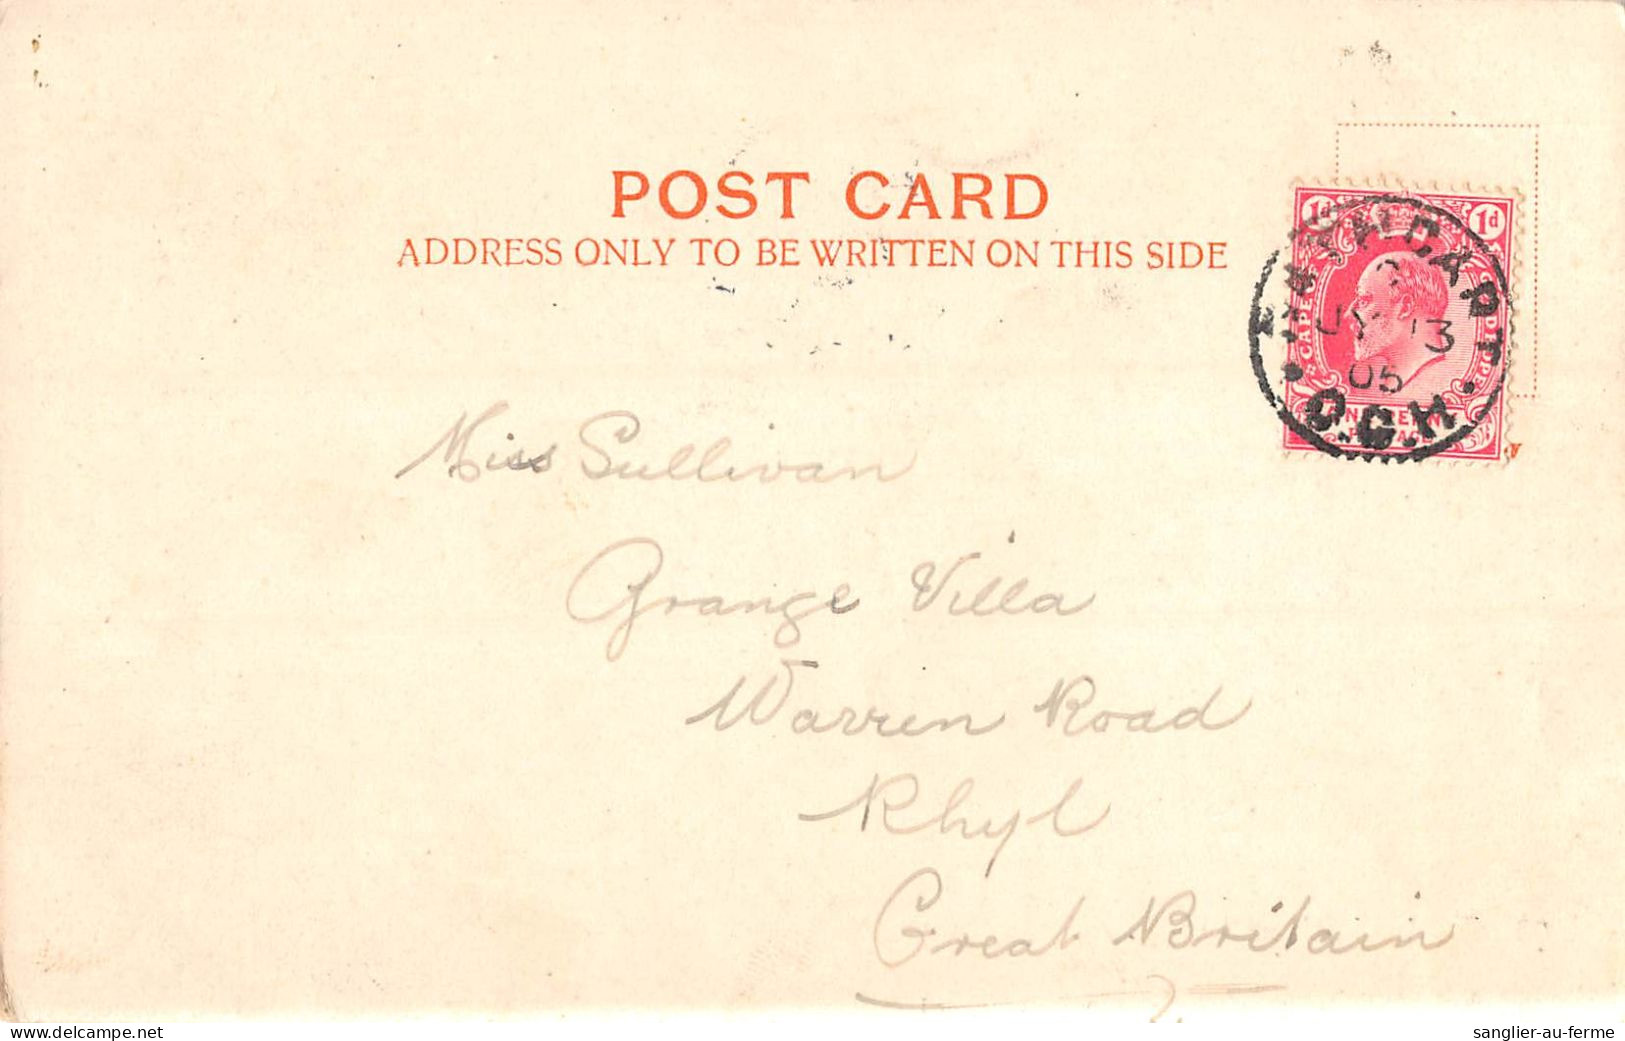 POST CARD
ADDRESS ONLY TO BE WRITTEN ON THIS SIDE
1d 1d
JY 13
05
C.G.H.
Miss Sullivan
Grange Villa
Warren Road
Rhyl
Great Britain
www.delcampe.net
sanglier-au-ferme